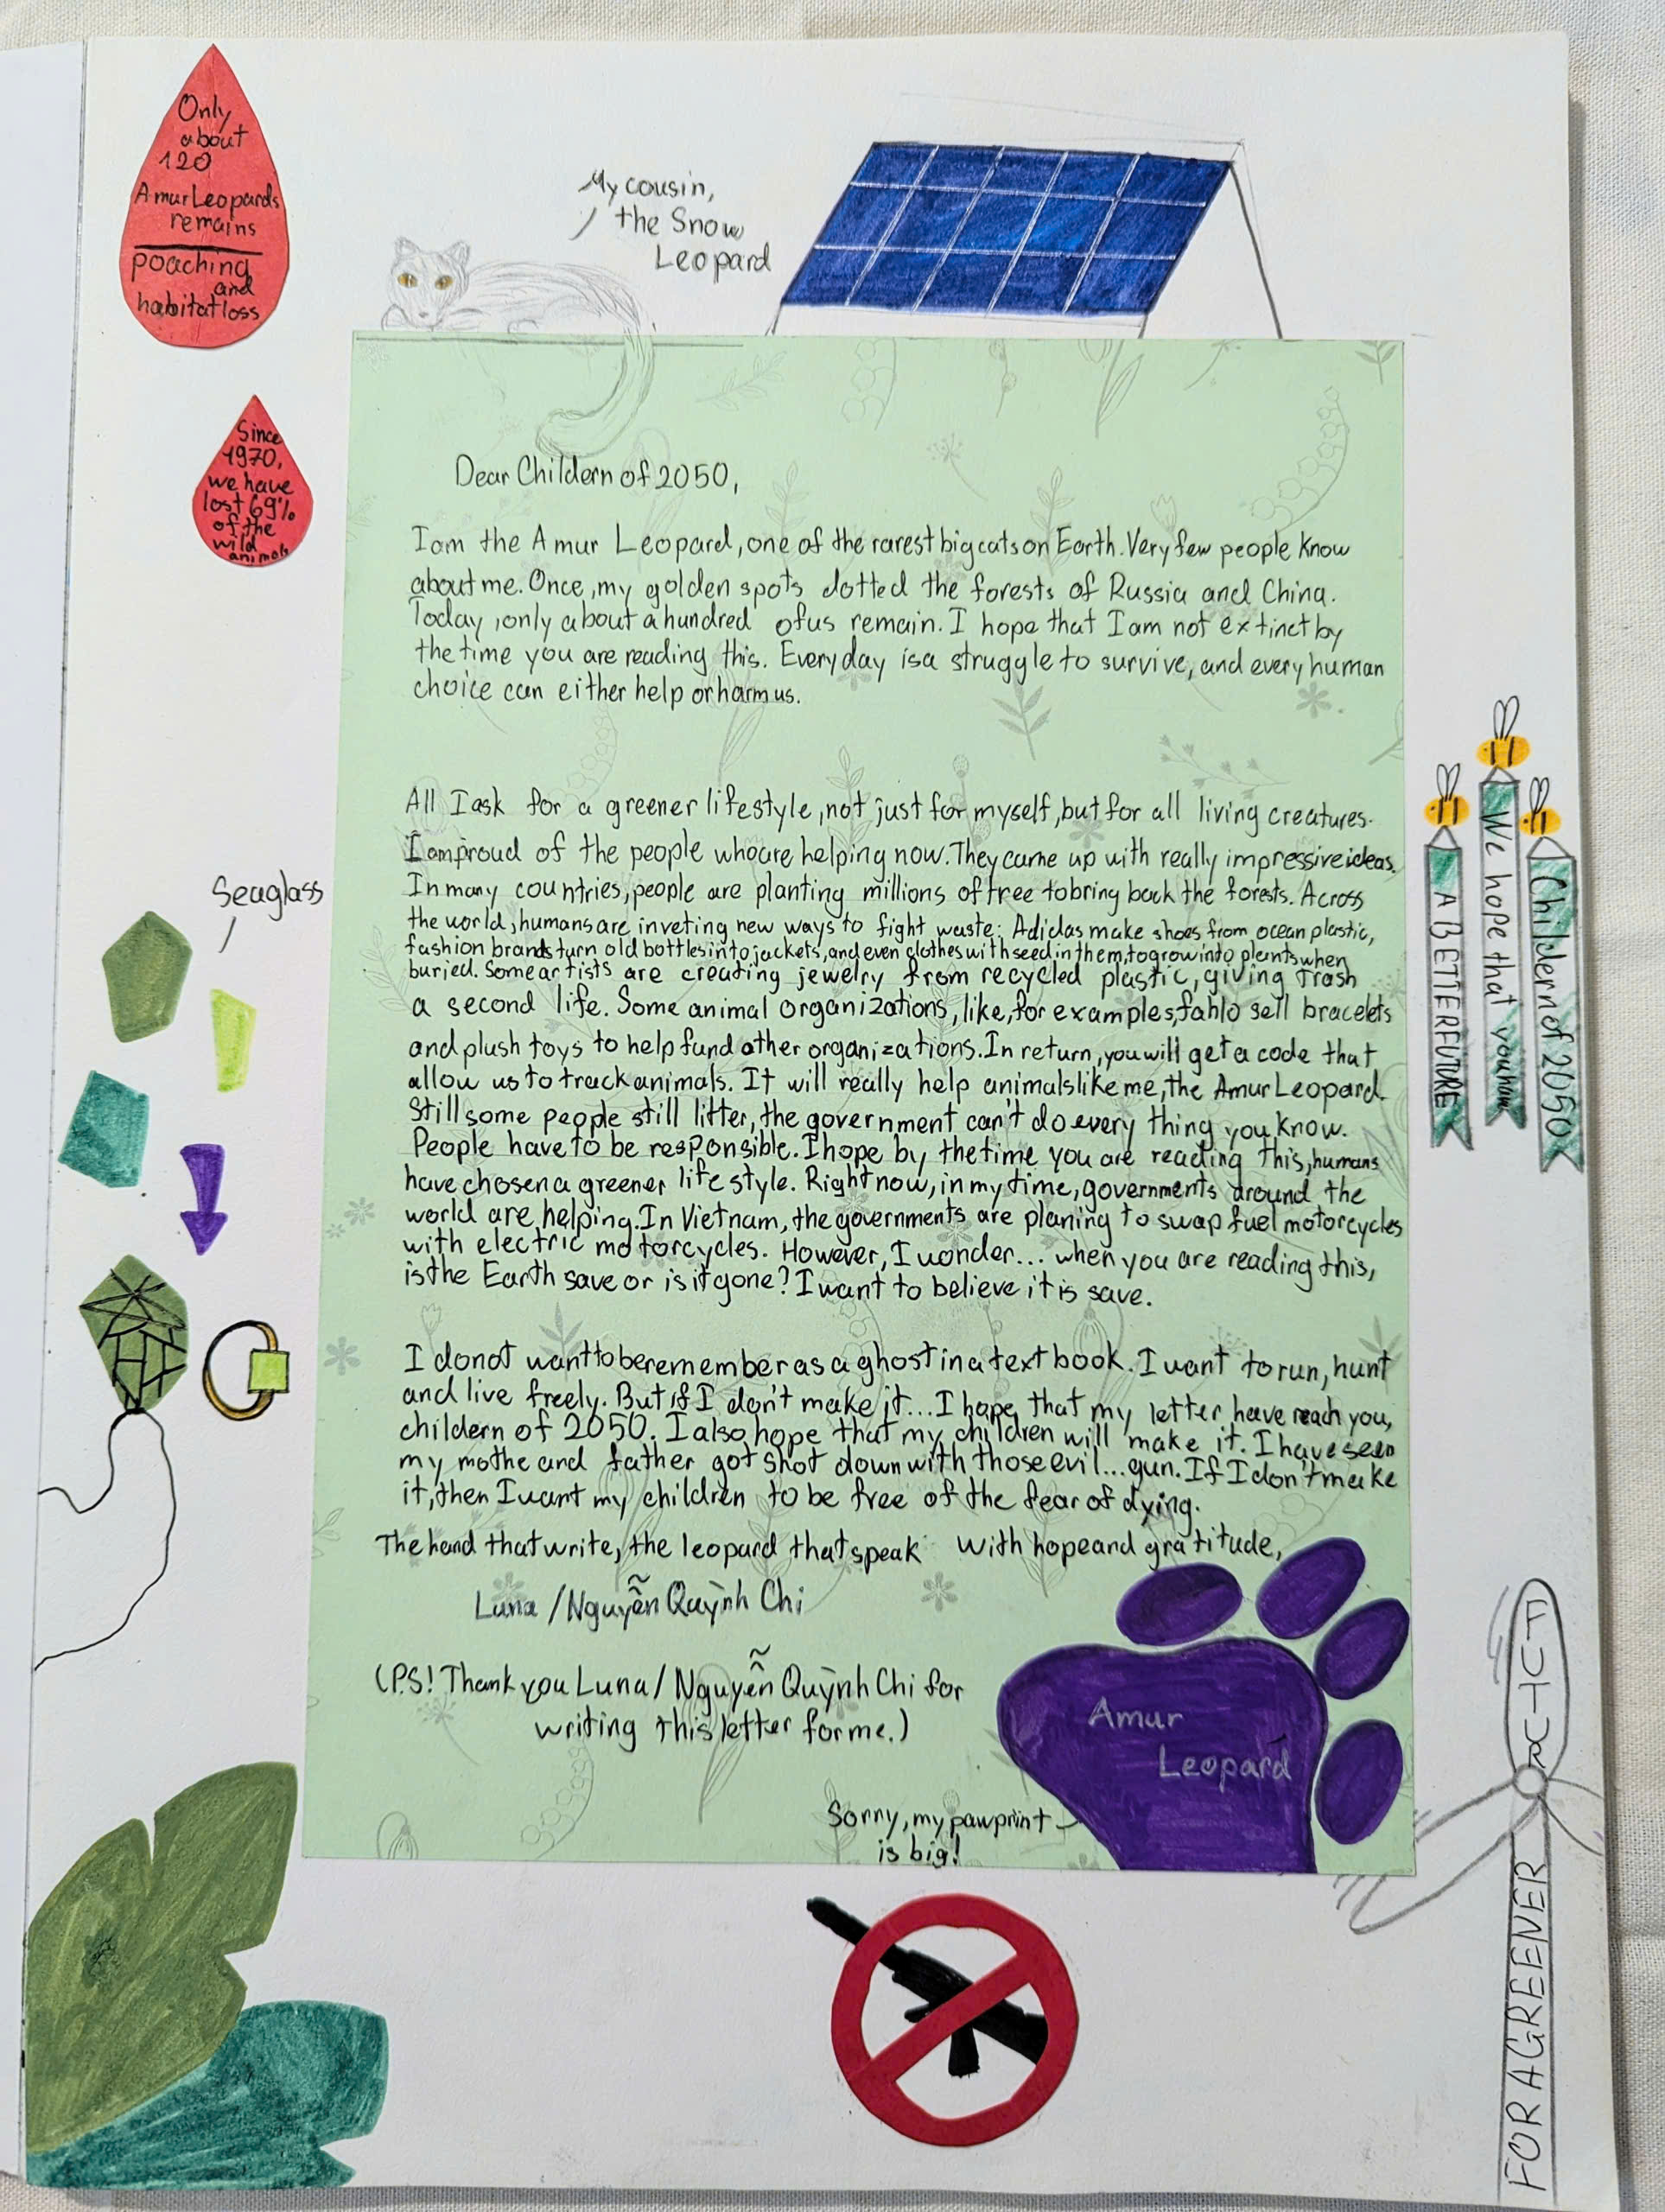 Only
about
120
Amur Leopards
remains
poaching
and
habitat loss
Since
1970,
we have
lost 69%
of the
wild
animals
My cousin,
the Snow
Leopard
Dear Childern of 2050,
I am the Amur Leopard, one of the rarest big cats on Earth. Very few people know
about me. Once, my golden spots dotted the forests of Russia and China.
Today, only about a hundred of us remain. I hope that I am not extinct by
the time you are reading this. Every day is a struggle to survive, and every human
choice can either help or harm us.
All I ask for a greener lifestyle, not just for myself, but for all living creatures.
I am proud of the people who are helping now. They came up with really impressive ideas.
In many countries, people are planting millions of tree to bring back the forests. Across
the world, humans are inveting new ways to fight waste: Adidas make shoes from ocean plastic,
fashion brands turn old bottles into jackets, and even clothes with seed in them, to grow into plants when
buried. Some artists are creating jewelry from recycled plastic, giving trash
a second life. Some animal organizations, like, for examples, fahlo sell bracelets
and plush toys to help fund other organizations. In return, you will get a code that
allow us to track animals. It will really help animals like me, the Amur Leopard.
Still some people still litter, the government can't do every thing you know.
People have to be responsible. I hope by the time you are reading this, humans
have chosen a greener life style. Right now, in my time, governments around the
world are helping. In Vietnam, the governments are planing to swap fuel motorcycles
with electric motorcycles. However, I wonder... when you are reading this,
is the Earth save or is it gone? I want to believe it is save.
I do not want to be remember as a ghost in a text book. I want to run, hunt
and live freely. But if I don't make it... I hope that my letter have reach you,
childern of 2050. I also hope that my children will make it. I have seen
my mothe and father got shot down with those evil... gun. If I don't make
it, then I want my children to be free of the fear of dying.
The hand that write, the leopard that speak With hope and gratitude,
Luna / Nguyễn Quỳnh Chi
(P.S! Thank you Luna / Nguyễn Quỳnh Chi for
writing this letter for me.)
Amur
Leopard
Sorry, my pawprint
is big!
Seaglass
Childern of 2050
We hope that you have
A BETTER FUTURE
FOR A GREENER
FUTURE